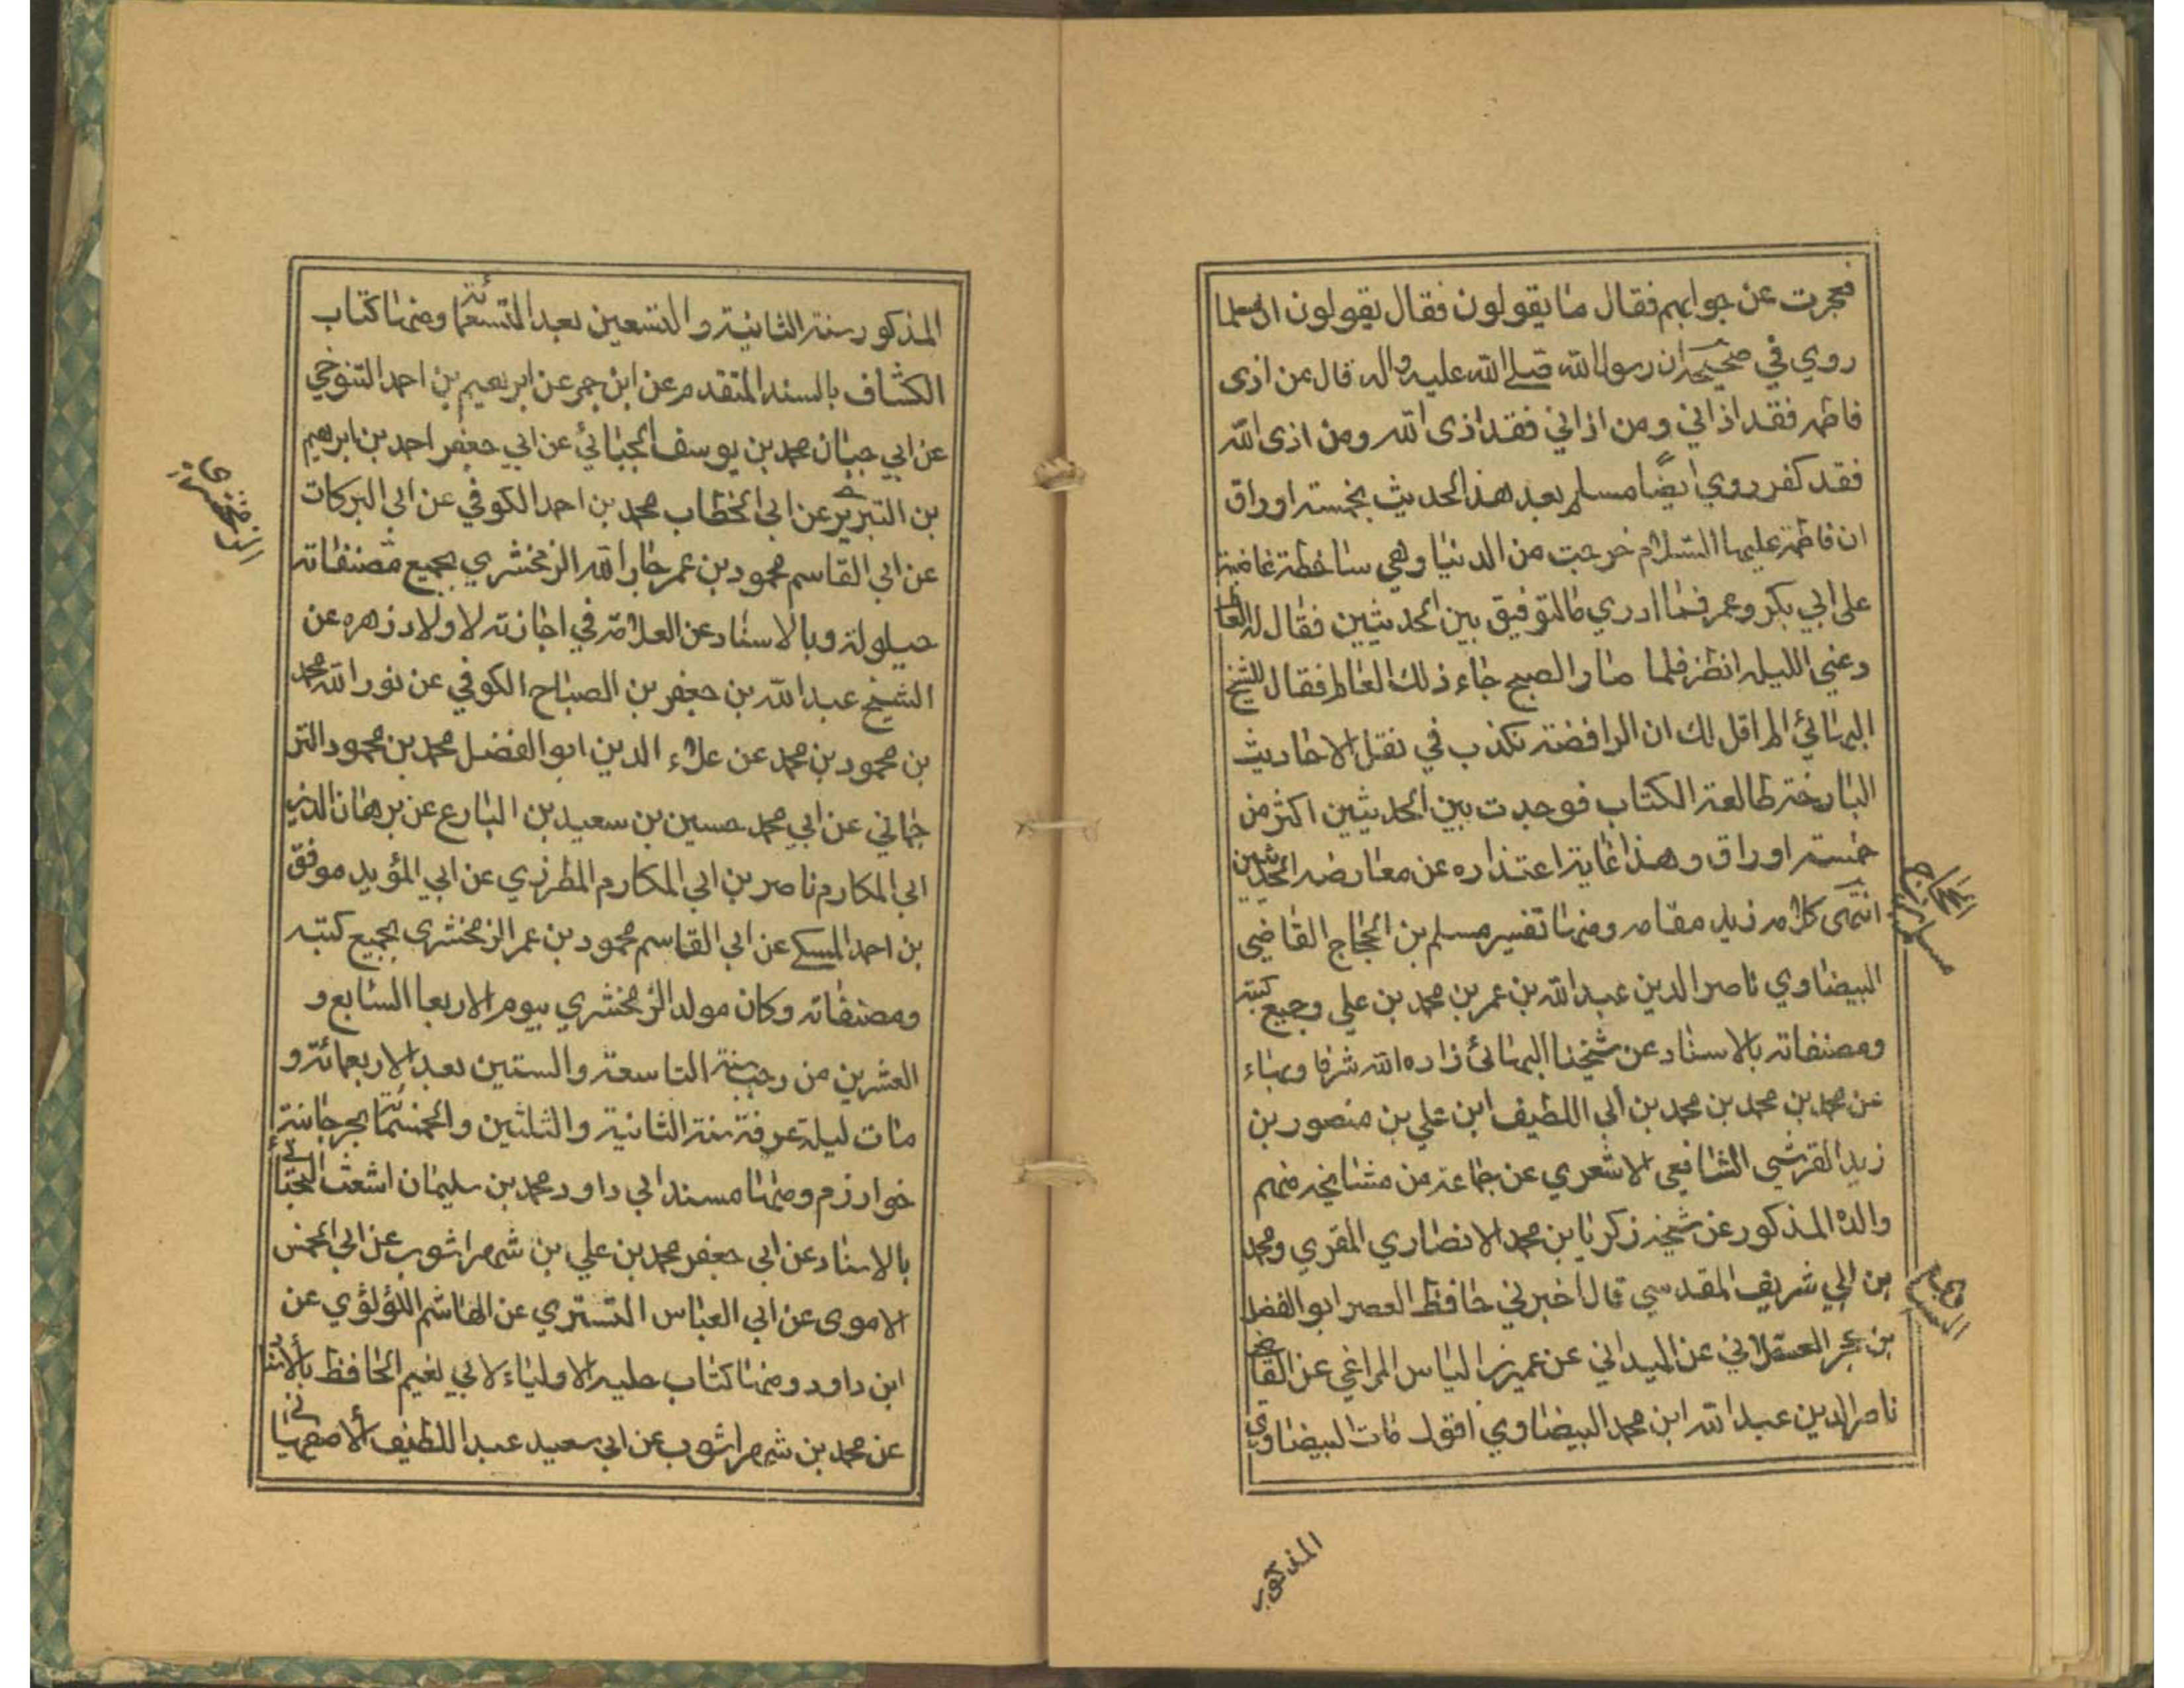 فعجزت عن جوابهم فقال ما يقولون فقال يقولون ان مسلما
روي في صحيحه ان رسول الله صلى الله عليه واله قال من اذى
فاطمه فقد اذاني ومن اذاني فقد اذى الله ومن اذى الله
فقد كفر روي ايضا مسلم بعد هذا الحديث بخمسة اوراق
ان فاطمة عليها السلام خرجت من الدنيا وهي ساخطة غاضبة
على ابي بكر وعمر فما ادري ما التوفيق بين الحديثين فقال له العا
دعني الليله انظر فلما صار الصبح جاء ذلك العالم فقال للشيخ
البهائي الم اقل لك ان الرافضة تكذب في نقل الاحاديث
البارحة طالعة الكتاب فوجدت بين الحديثين اكثر من
خمسة اوراق وهذا غاية اعتذاره عن معارضه الحديثين
انتهى كلامه زيد مقامه ومنها تفسير مسلم بن الحجاج القاضي
البيضاوي ناصر الدين عبد الله بن عمر بن محمد بن علي وجميع كتبه
ومصنفاته بالاسناد عن شيخنا البهائي زاده الله شرفا وبهاء
عن محمد بن محمد بن محمد بن ابي اللطيف ابن علي بن منصور بن
زيد القرشي الشافعي الاشعري عن جماعة من مشايخه منهم
والده المذكور عن شيخه زكريا بن محمد الانصاري المقري ومحمد
بن ابي شريف المقدسي قال اخبرني حافظ العصر ابو الفضل
بن حجر العسقلاني عن الميداني عن عمر بن الياس المراغي عن القاضي
ناصر الدين عبد الله ابن محمد البيضاوي اقول مات البيضاوي
الحجاج
مسلم بن
المذكور
المذكور سنة الثانية والتسعين بعد التسعمائة ومنها كتاب
الكشاف بالسند المتقدم عن ابن حجر عن ابرهيم بن احمد التنوخي
عن ابي حبان محمد بن يوسف الجبائي عن ابي جعفر احمد بن ابرهيم
بن التبريزي عن ابي الخطاب محمد بن احمد الكوفي عن ابي البركات
عن ابي القاسم محمود بن عمر جار الله الزمخشري بجميع مصنفاته
حيلولة وبالاسناد عن العلامة في اجازته لاولاد زهره عن
الشيخ عبد الله بن جعفر بن الصباح الكوفي عن نور الله محمد
بن محمود بن محمد عن علاء الدين ابو الفضل محمد بن محمود التر
جماني عن ابي محمد حسين بن سعيد بن البارع عن برهان الدين
ابي المكارم ناصر بن ابي المكارم المطرزي عن ابي المؤيد موفق
بن احمد المسكي عن ابي القاسم محمود بن عمر الزمخشري بجميع كتبه
ومصنفاته وكان مولد الزمخشري بيوم الاربعا السابع و
العشرين من رجب سنة التاسعة والستين بعد الاربعمائة و
مات ليلة عرفة سنة الثانية والثلثين والخمسمائة بجرجانية
خوارزم ومنها مسند ابي داود محمد بن سليمان اشعث السجستاني
بالاسناد عن ابي جعفر محمد بن علي بن شهراشوب عن ابي الحسن
الاموى عن ابي العباس التستري عن الهاشم اللؤلؤي عن
ابن داود ومنها كتاب حليه الاولياء لابي نعيم الحافظ بالاسناد
عن محمد بن شهراشوب عن ابي سعيد عبد اللطيف الاصفهاني
الزمخشري